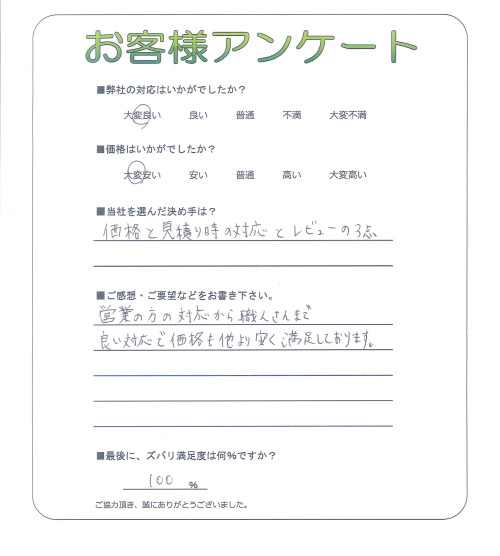 お客様アンケート
■弊社の対応はいかがでしたか？
大変良い 良い 普通 不満 大変不満
■価格はいかがでしたか？
大変安い 安い 普通 高い 大変高い
■当社を選んだ決め手は？
価格と見積り時の対応とレビューの3点
■ご感想・ご要望などをお書き下さい。
営業の方の対応から職人さんまで
良い対応で価格も他より安く満足しております。
■最後に、ズバリ満足度は何％ですか？
100 ％
ご協力頂き、誠にありがとうございました。